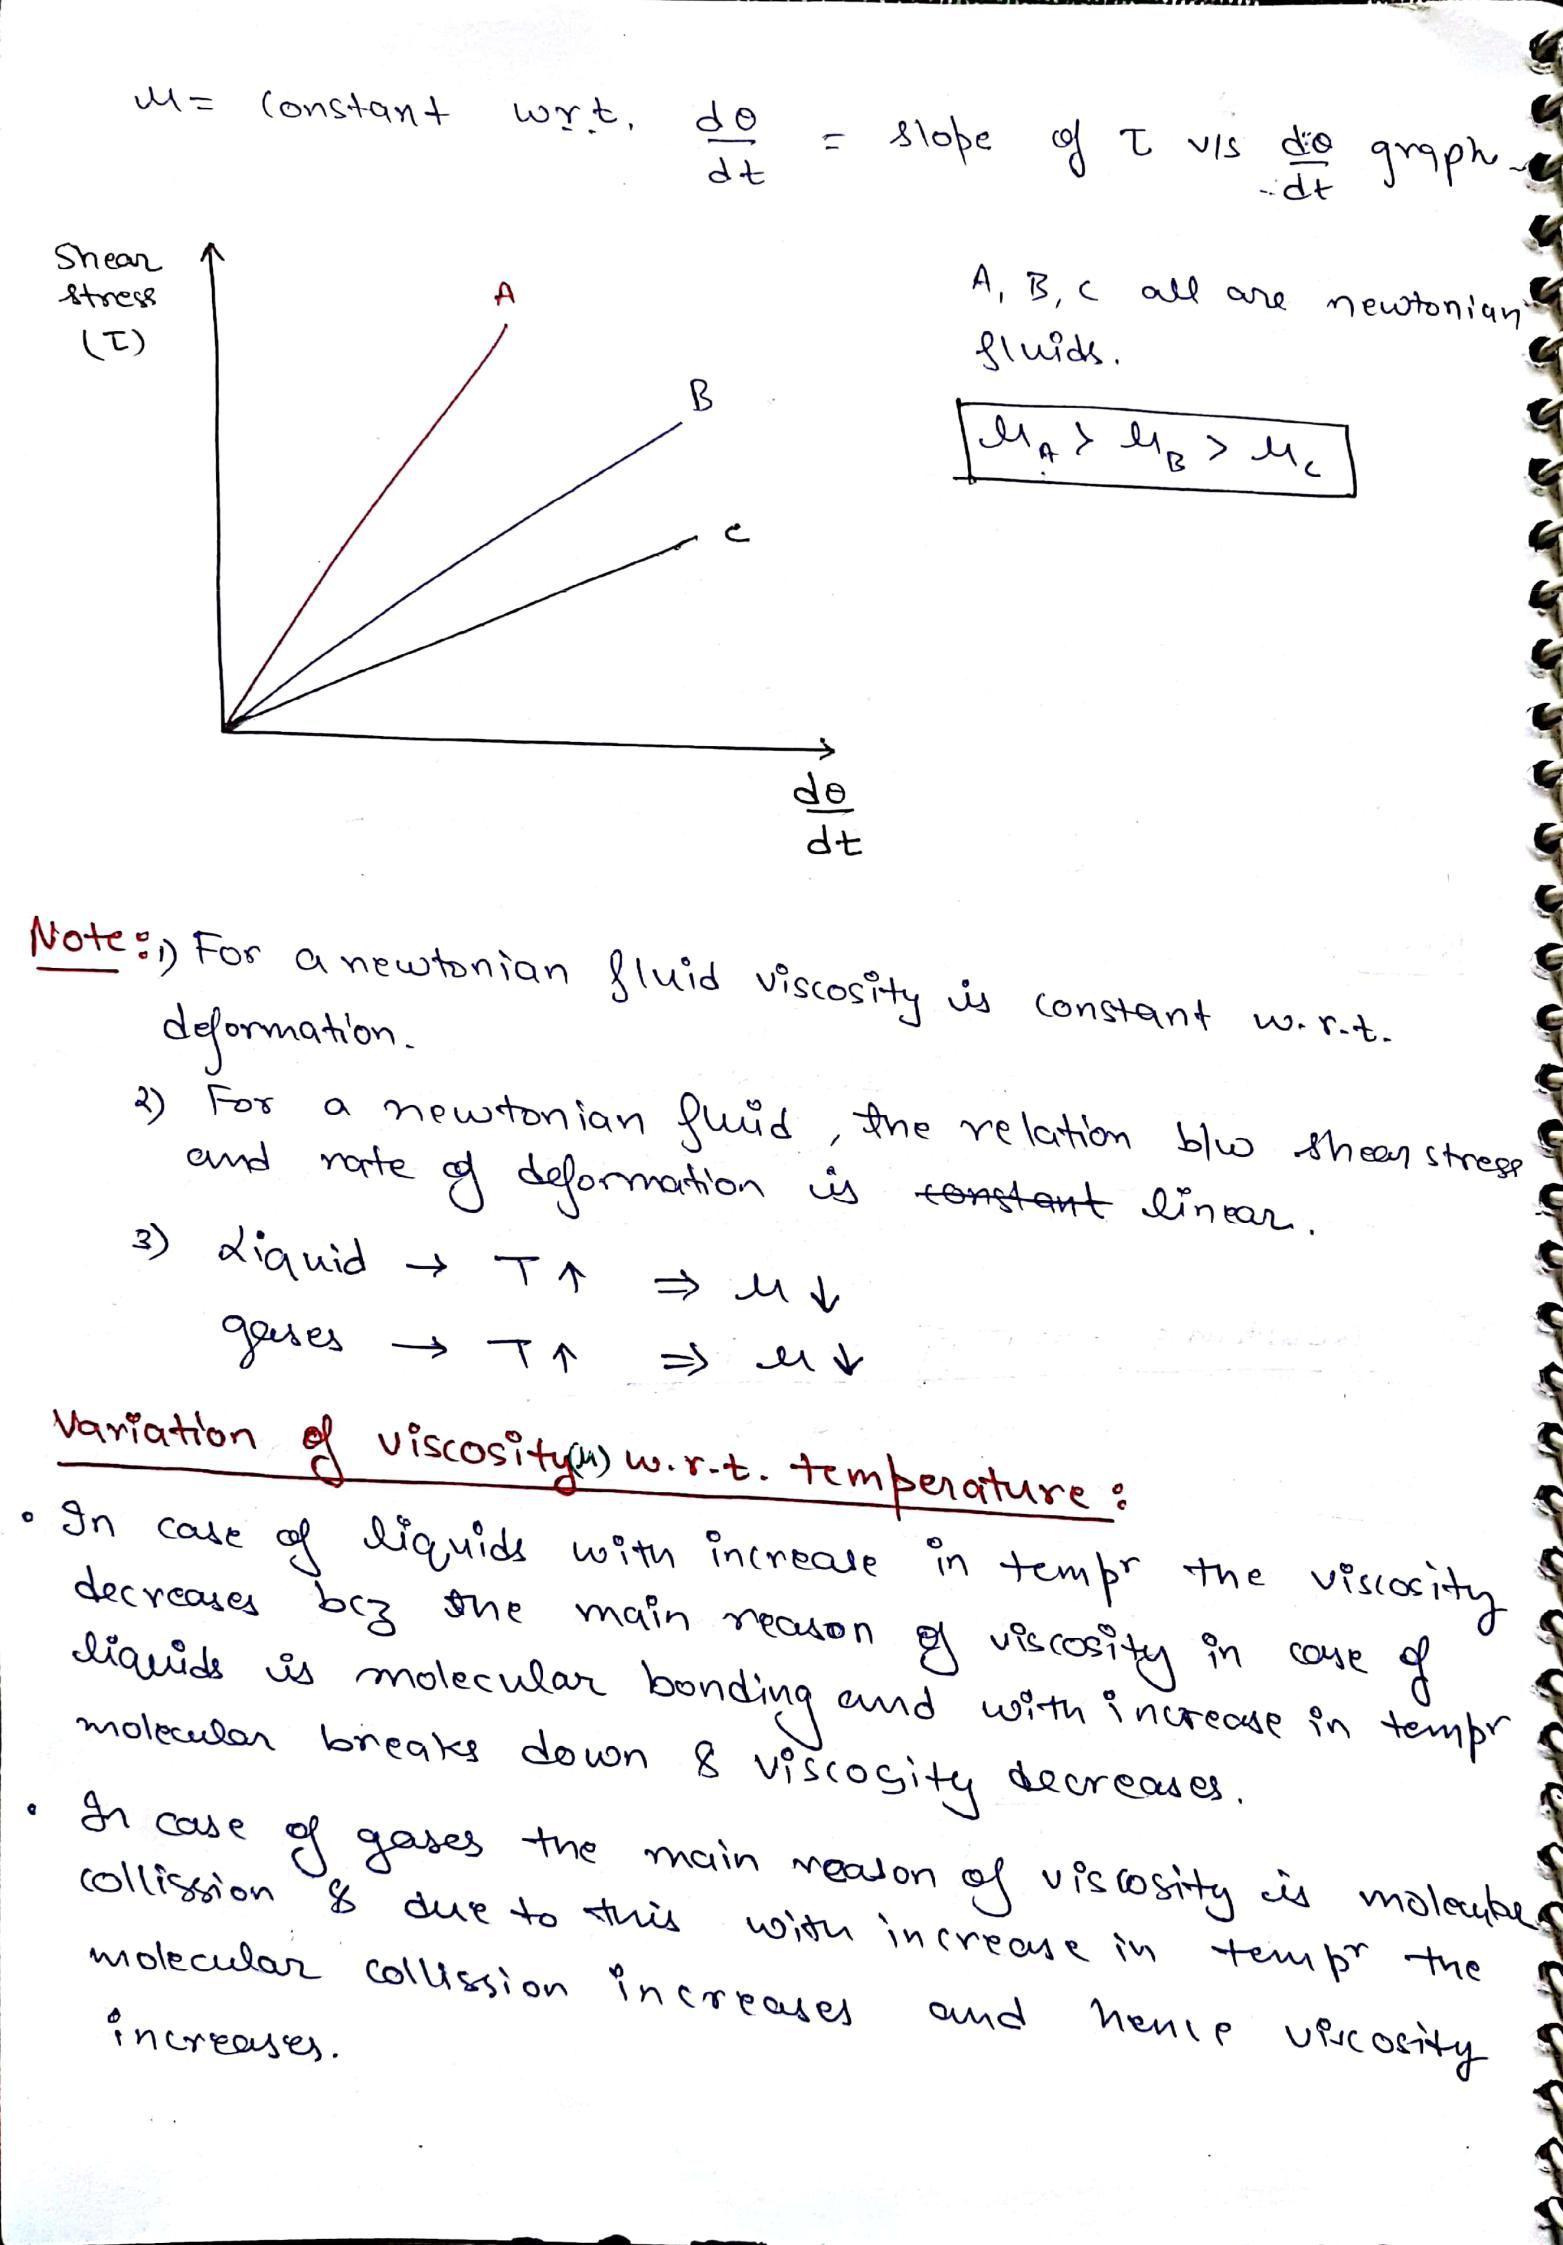 μ = constant w.r.t. dθ/dt = slope of τ v/s dθ/dt graph
Shear
stress
(τ)
A
B
C
dθ/dt
A, B, C all are newtonian
fluids.
μA > μB > μC
Note: 1) For a newtonian fluid viscosity is constant w.r.t.
deformation.
2) For a newtonian fluid, the relation b/w shear stress
and rate of deformation is ~~constant~~ linear.
3) Liquid → T↑ ⇒ μ↓
gases → T↑ ⇒ μ↓
Variation of viscosity(μ) w.r.t. temperature:
• In case of liquids with increase in tempr the viscosity
decreases bcz the main reason of viscosity in case of
liquids is molecular bonding and with increase in tempr
molecular breaks down & viscosity decreases.
• In case of gases the main reason of viscosity is
collission & due to this with increase in tempr the
molecular collission increases and hence viscosity
increases.